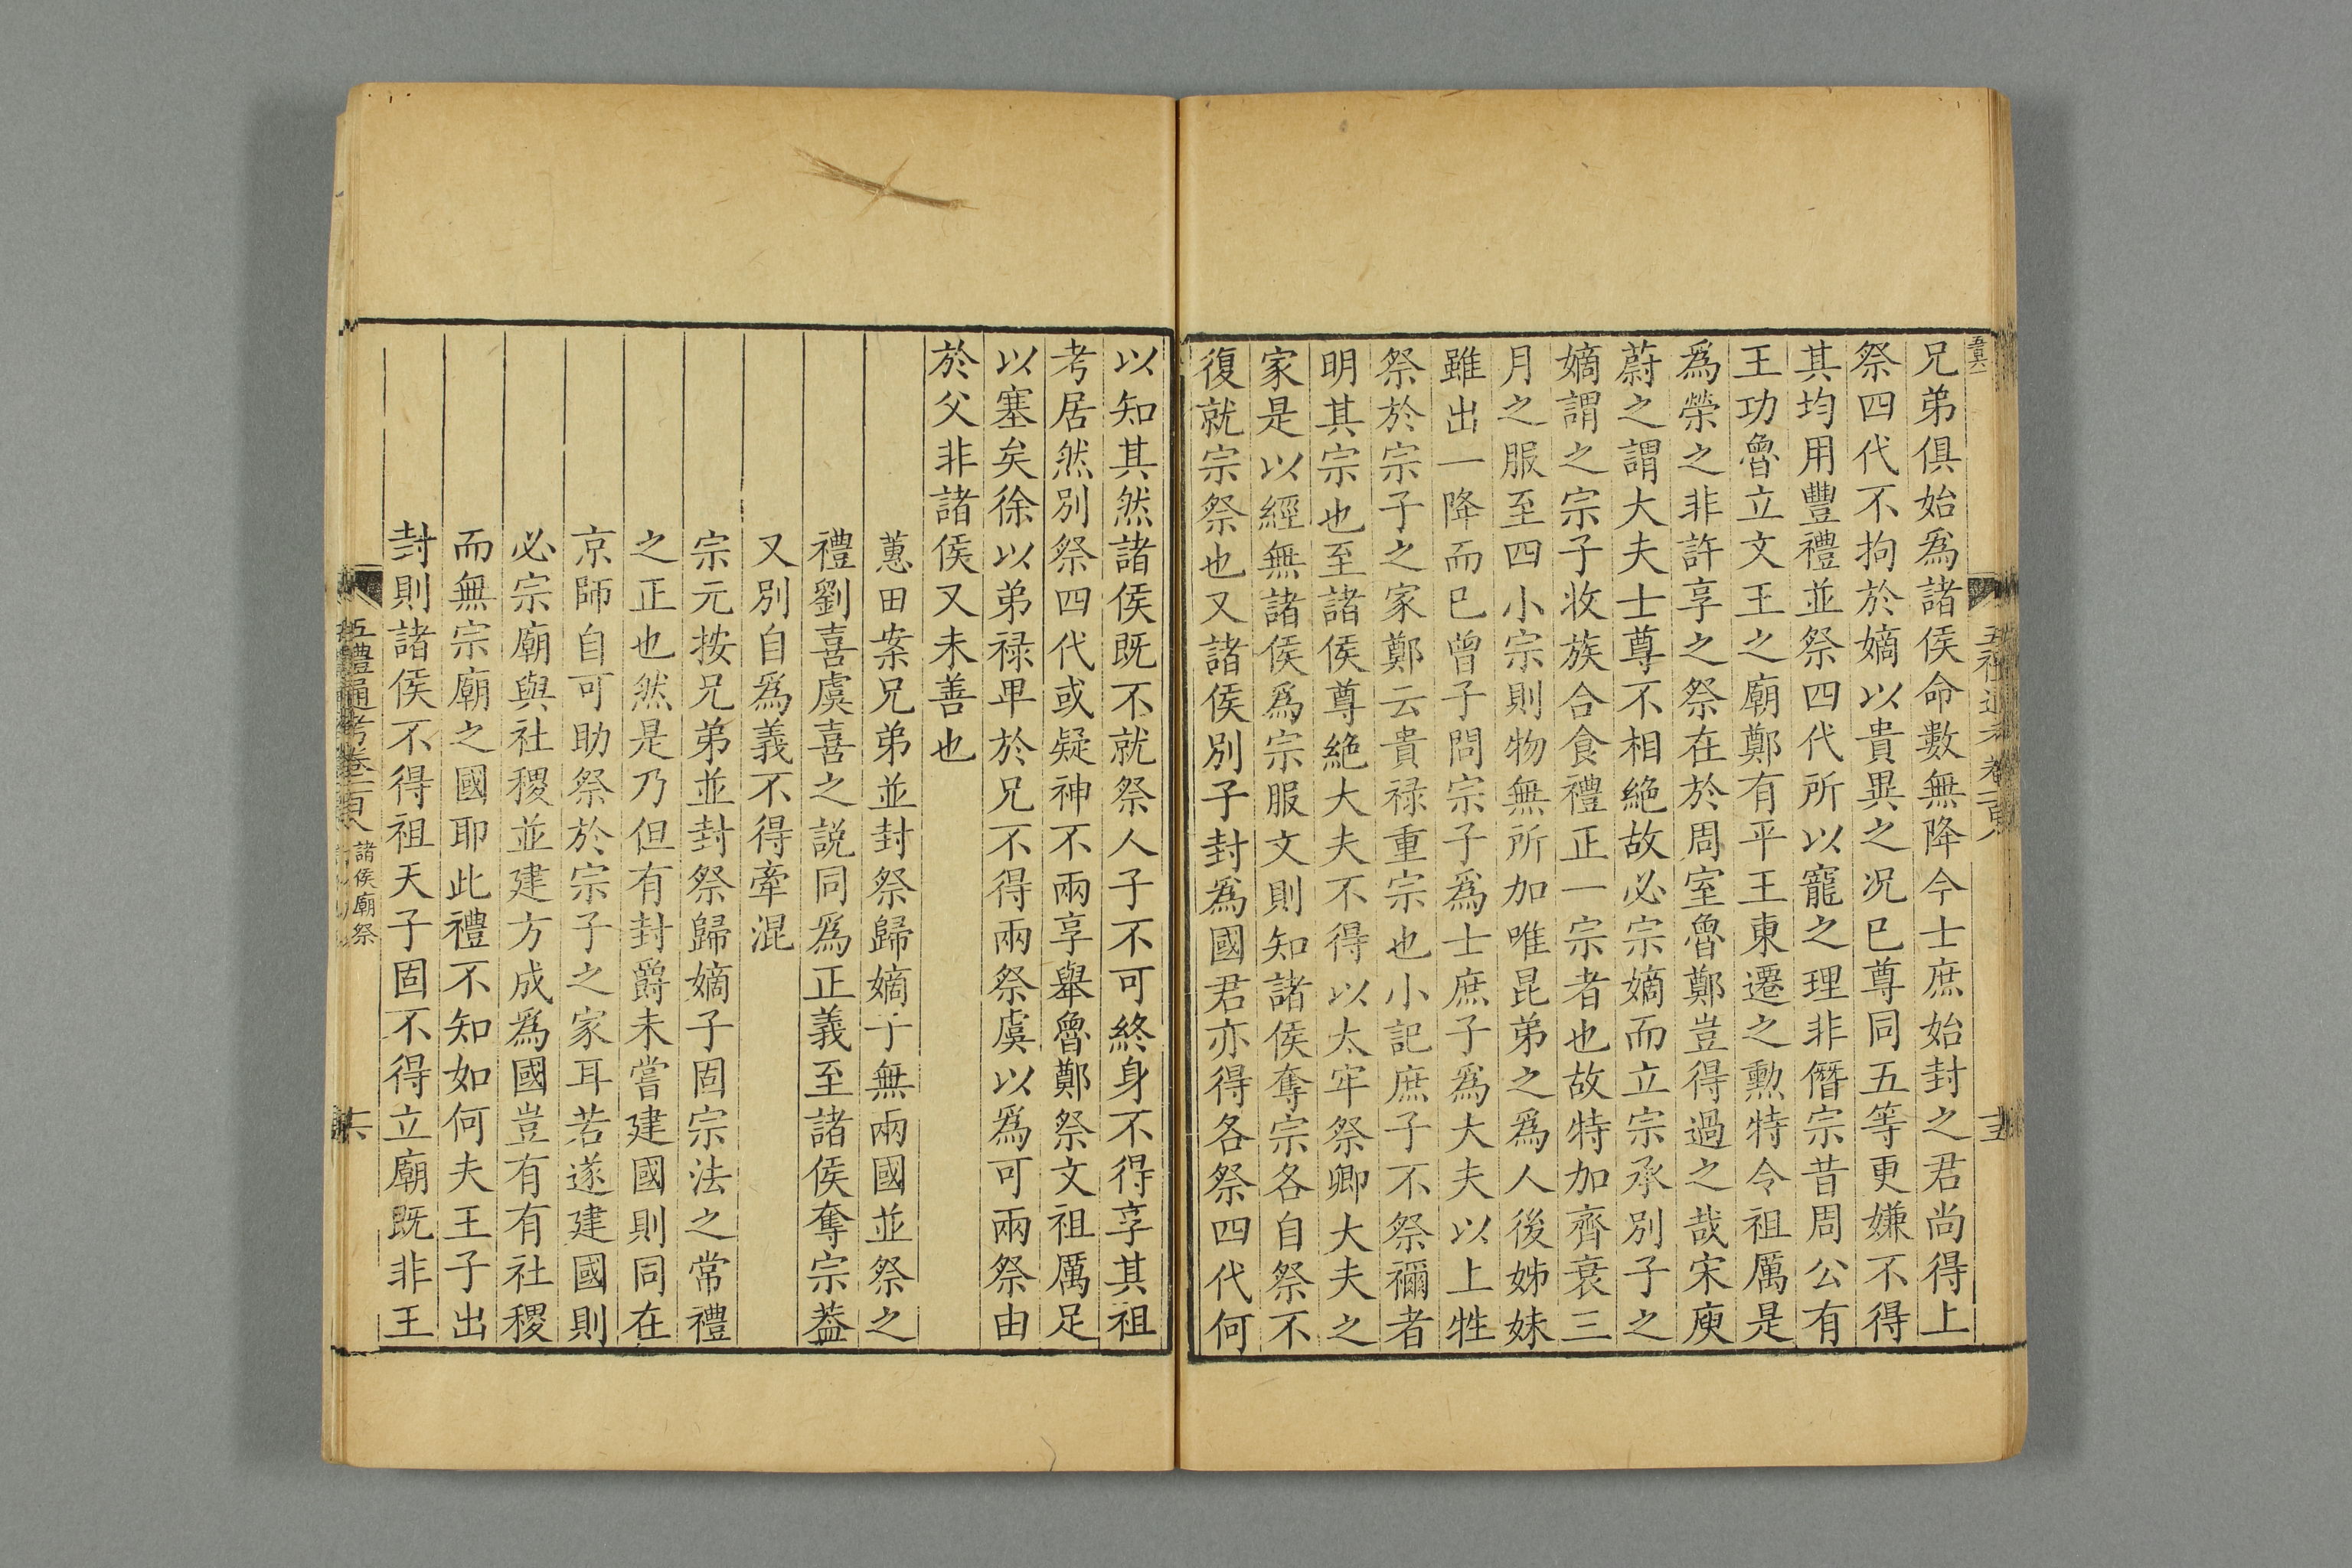 兄弟俱始爲諸侯命數無降今士庶始封之君尚得上
祭四代不拘於嫡以貴異之况已尊同五等更嫌不得
其均用豐禮並祭四代所以寵之理非僭宗昔周公有
王功魯立文王之廟鄭有平王東遷之勲特令祖厲是
爲榮之非許享之祭在於周室魯鄭豈得過之哉宋庾
蔚之謂大夫士尊不相絶故必宗嫡而立宗承別子之
嫡謂之宗子收族合食禮正一宗者也故特加齊衰三
月之服至四小宗則物無所加唯昆弟之爲人後姊妹
雖出一降而已曾子問宗子爲士庶子爲大夫以上牲
祭於宗子之家鄭云貴禄重宗也小記庶子不祭禰者
明其宗也至諸侯尊絶大夫不得以太牢祭卿大夫之
家是以經無諸侯爲宗服文則知諸侯奪宗各自祭不
復就宗祭也又諸侯別子封爲國君亦得各祭四代何
以知其然諸侯既不就祭人子不可終身不得享其祖
考居然別祭四代或疑神不兩享舉魯鄭祭文祖厲足
以塞矣徐以弟禄卑於兄不得兩祭虞以爲可兩祭由
於父非諸侯又未善也
蕙田案兄弟並封祭歸嫡子無兩國並祭之
禮劉喜虞喜之説同爲正義至諸侯奪宗葢
又別自爲義不得牽混
宗元按兄弟並封祭歸嫡子固宗法之常禮
之正也然是乃但有封爵未嘗建國則同在
京師自可助祭於宗子之家耳若遂建國則
必宗廟與社稷並建方成爲國豈有有社稷
而無宗廟之國耶此禮不知如何夫王子出
封則諸侯不得祖天子固不得立廟既非王
五禮通考卷一百八 諸侯廟祭
十六